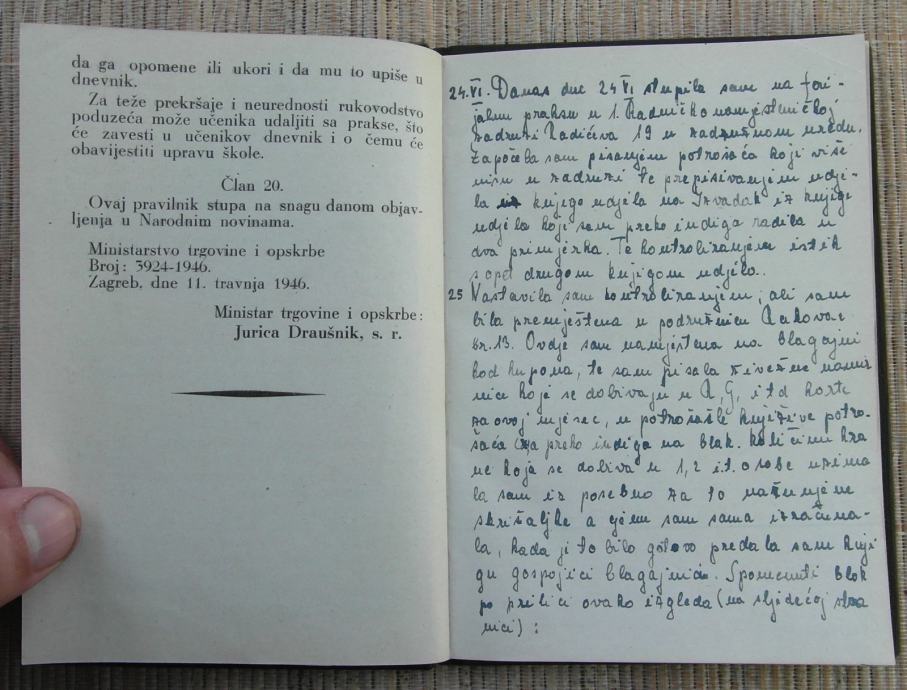 da ga opomene ili ukori i da mu to upiše u
dnevnik.
Za teže prekršaje i neurednosti rukovodstvo
poduzeća može učenika udaljiti sa prakse, što
će zavesti u učenikov dnevnik i o čemu će
obavijestiti upravu škole.
Član 20.
Ovaj pravilnik stupa na snagu danom objav-
ljenja u Narodnim novinama.
Ministarstvo trgovine i opskrbe
Broj: 3924-1946.
Zagreb, dne 11. travnja 1946.
Ministar trgovine i opskrbe:
Jurica Draušnik, s. r.
24.VI. Danas dne 24 VI stupila sam na feri-
jalnu praksu u 1. Radničko namještničkoj
zadruzi Radićeva 19 u zadružnom uredu.
Započela sam pisanjem potrošača koji više
nisu u zadruzi te prepisivanjem udje-
la knjige udjela na Izvadak iz knjige
udjela koje sam preko indiga radila u
dva primjerka. Te kontroliranjem istih
s opet drugom knjigom udjela.
25 Nastavila sam kontroliranjem, ali sam
bila premještena u podružnicu Rakovac
br. 13. Ovdje sam namještena na blagajni
kod kupona, te sam pisala živežne namir
nice koje se dobivaju u R, G, i t d karte
za ovaj mjesec, u potrošačke knjižice potro-
šača preko indiga na blok. Količinu hra
ne koja se dobiva u 1, 2 i t. osobe uzima
la sam iz posebno za to načinjene
skrižaljke a cijenu sam sama izračuna-
la, kada je to bilo gotovo predala sam knji
gu gospojici blagajnici. Spomenuti blok
po prilici ovako izgleda (na sljedećoj stra
nici):